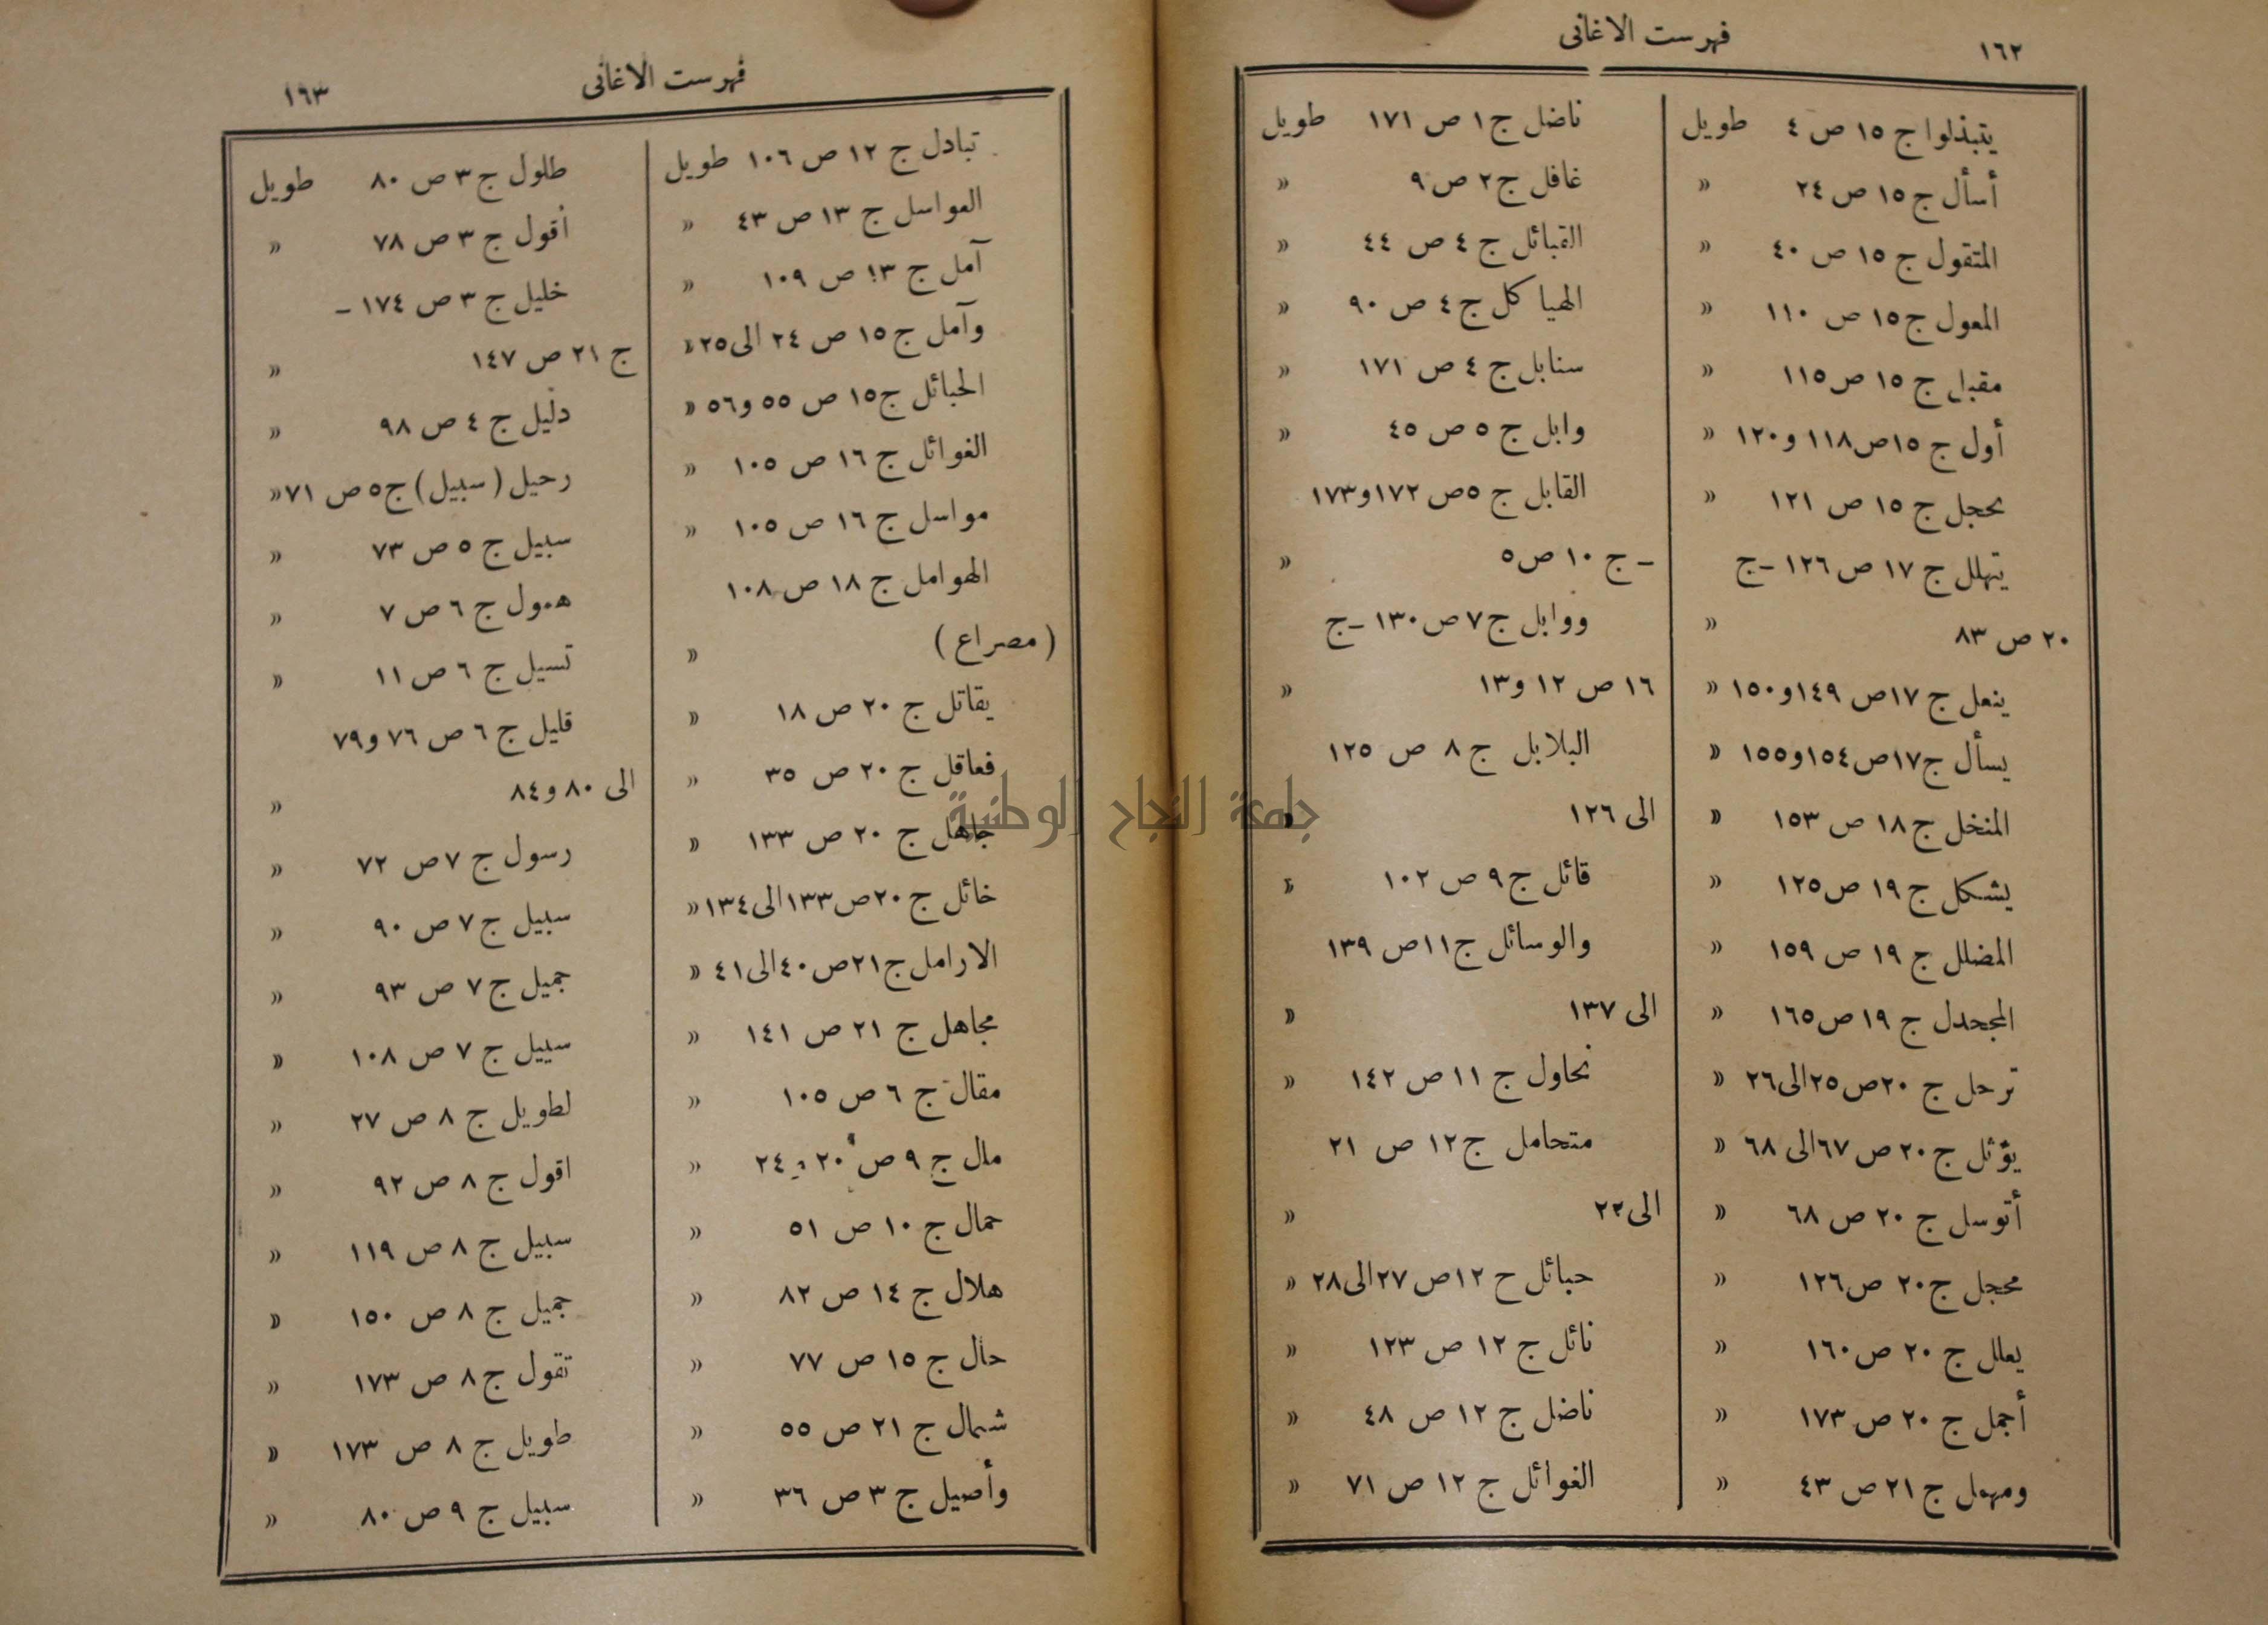 ١٦٢
فهرست الاغانى
يتبذلوا ج ١٥ ص ٤ طويل
أسأل ج ١٥ ص ٢٤ «
المتقول ج ١٥ ص ٤٠ «
المعول ج ١٥ ص ١١٠ «
مقبل ج ١٥ ص ١١٥ «
أول ج ١٥ ص ١١٨ و ١٢٠ «
محجل ج ١٥ ص ١٢١ «
يتهلل ج ١٧ ص ١٢٦ – ج
٢٠ ص ٨٣ «
ينعل ج ١٧ ص ١٤٩ و ١٥٠ «
يسأل ج ١٧ ص ١٥٤ و ١٥٥ «
المنخل ج ١٨ ص ١٥٣ «
يشكل ج ١٩ ص ١٢٥ «
المضلل ج ١٩ ص ١٥٩ «
المجحدل ج ١٩ ص ١٦٥ «
ترحل ج ٢٠ ص ٢٥ الى ٢٦ «
يؤثل ج ٢٠ ص ٦٧ الى ٦٨ «
أتوسل ج ٢٠ ص ٦٨ «
محجل ج ٢٠ ص ١٢٦ «
يعلل ج ٢٠ ص ١٦٠ «
أجمل ج ٢٠ ص ١٧٣ «
ومهمل ج ٢١ ص ٤٣ «
ناضل ج ١ ص ١٧١ طويل
غافل ج ٢ ص ٩ «
القبائل ج ٤ ص ٤٤ «
الهياكل ج ٤ ص ٩٠ «
سنابل ج ٤ ص ١٧١ «
وابل ج ٥ ص ٤٥ «
القابل ج ٥ ص ١٧٢ و ١٧٣
– ج ١٠ ص ٥ «
ووابل ج ٧ ص ١٣٠ – ج
١٦ ص ١٢ و ١٣ «
البلابل ج ٨ ص ١٢٥
الى ١٢٦ «
قائل ج ٩ ص ١٠٢ «
والوسائل ج ١١ ص ١٣٩
الى ١٣٧ «
نحاول ج ١١ ص ١٤٢ «
متحامل ج ١٢ ص ٢١
الى ٢٢ «
حبائل ح ١٢ ص ٢٧ الى ٢٨ «
نائل ج ١٢ ص ١٢٣ «
ناضل ج ١٢ ص ٤٨ «
الغوائل ج ١٢ ص ٧١ «
فهرست الاغانى
١٦٣
تبادل ج ١٢ ص ١٠٦ طويل
العواسل ج ١٣ ص ٤٣ «
آمل ج ١٣ ص ١٠٩ «
وآمل ج ١٥ ص ٢٤ الى ٢٥ «
الحبائل ج ١٥ ص ٥٥ و ٥٦ «
الغوائل ج ١٦ ص ١٠٥ «
مواسل ج ١٦ ص ١٠٥ «
الهوامل ج ١٨ ص ١٠٨
(مصراع) «
يقاتل ج ٢٠ ص ١٨ «
فعاقل ج ٢٠ ص ٣٥ «
جاهل ج ٢٠ ص ١٣٣ «
خائل ج ٢٠ ص ١٣٣ الى ١٣٤ «
الارامل ج ٢١ ص ٤٠ الى ٤١ «
مجاهل ج ٢١ ص ١٤١ «
مقال ج ٦ ص ١٠٥ «
مال ج ٩ ص ٢٠ و ٢٤ «
حمال ج ١٠ ص ٥١ «
هلال ج ١٤ ص ٨٢ «
حال ج ١٥ ص ٧٧ «
شمال ج ٢١ ص ٥٥ «
وأصيل ج ٣ ص ٣٦ «
طلول ج ٣ ص ٨٠ طويل
أقول ج ٣ ص ٧٨ «
خليل ج ٣ ص ١٧٤ –
ج ٢١ ص ١٤٧ «
دليل ج ٤ ص ٩٨ «
رحيل (سبيل) ج ٥ ص ٧١ «
سبيل ج ٥ ص ٧٣ «
همول ج ٦ ص ٧ «
تسيل ج ٦ ص ١١ «
قليل ج ٦ ص ٧٦ و ٧٩
الى ٨٠ و ٨٤ «
رسول ج ٧ ص ٧٢ «
سبيل ج ٧ ص ٩٠ «
جميل ج ٧ ص ٩٣ «
سبيل ج ٧ ص ١٠٨ «
لطويل ج ٨ ص ٢٧ «
اقول ج ٨ ص ٩٢ «
سبيل ج ٨ ص ١١٩ «
جميل ج ٨ ص ١٥٠ «
تقول ج ٨ ص ١٧٣ «
طويل ج ٨ ص ١٧٣ «
سبيل ج ٩ ص ٨٠ «
جامعة النجاح الوطنية